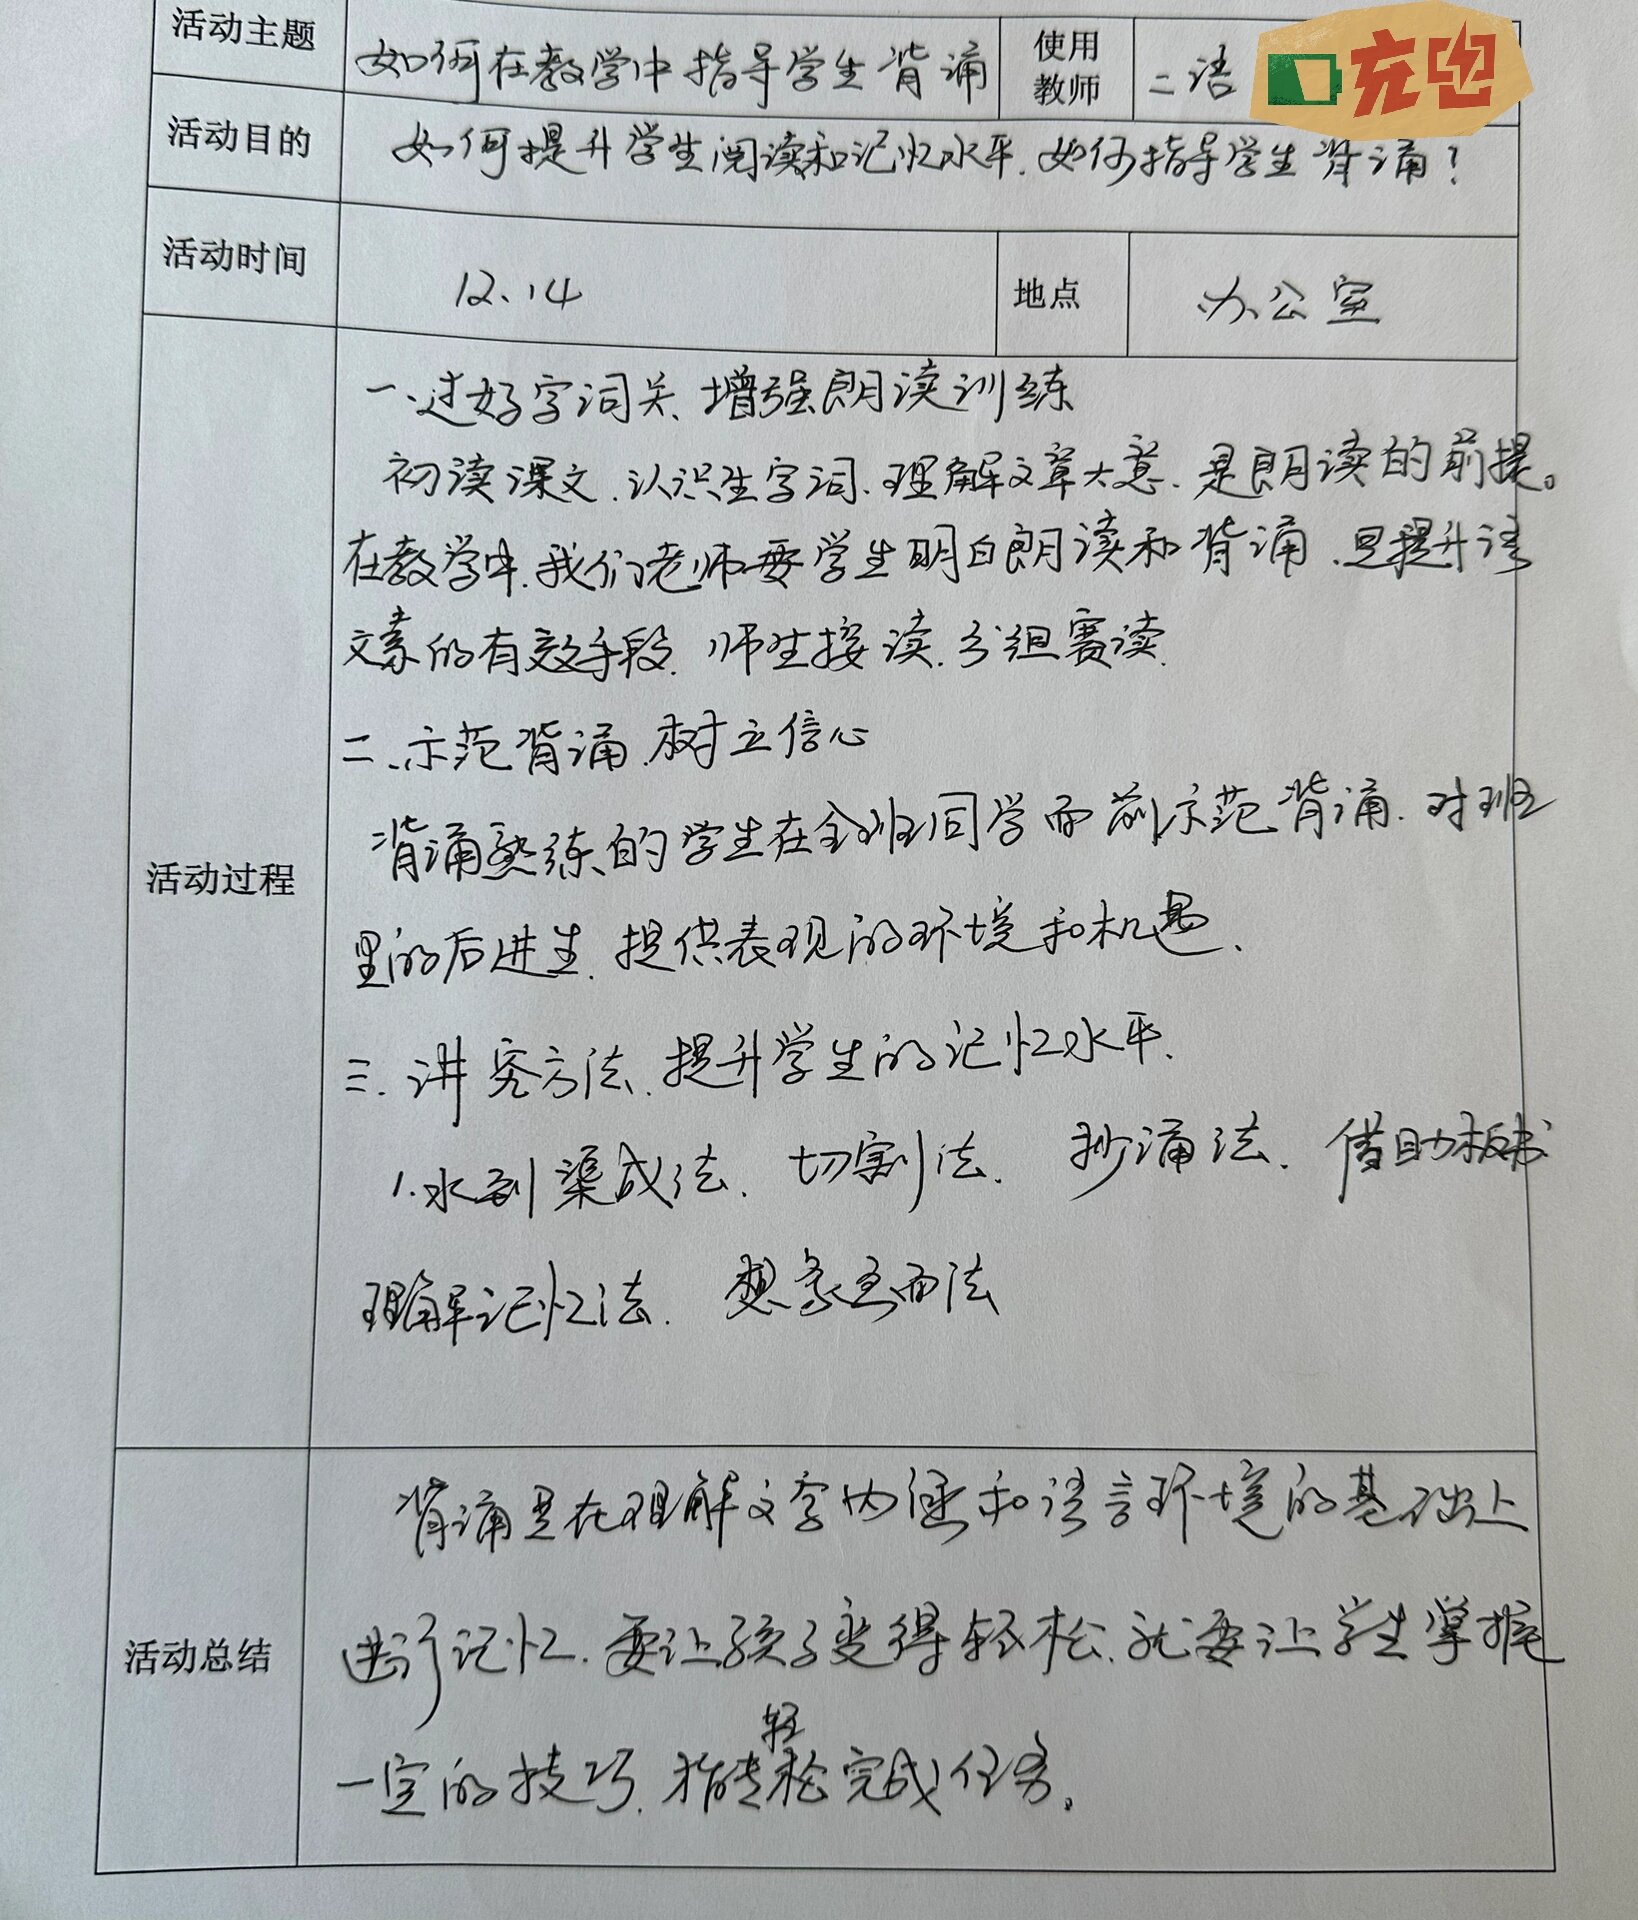 活动主题 如何在教学中指导学生背诵 使用教师 二语 充电
活动目的 如何提升学生阅读和记忆水平、如何指导学生背诵?
活动时间 12、14 地点 办公室
活动过程
一、过好字词关、增强朗读训练
初读课文、认识生字词、理解文章大意、是朗读的前提。
在教学中、我们老师要学生明白朗读和背诵、是提升语
文素的有效手段、师生接读、分组赛读、
二、示范背诵、树立信心
背诵熟练的学生在全班同学面前示范背诵、对班
里的后进生、提供表现的环境和机遇、
三、讲究方法、提升学生的记忆水平、
1、水到渠成法、切割法、抄诵法、借助板书
理解记忆法、想象画面法
活动总结
背诵是在理解文字内涵和语言环境的基础上
进行记忆、要让孩子变得轻松、就要让学生掌握
一定的技巧、才能轻松完成任务。